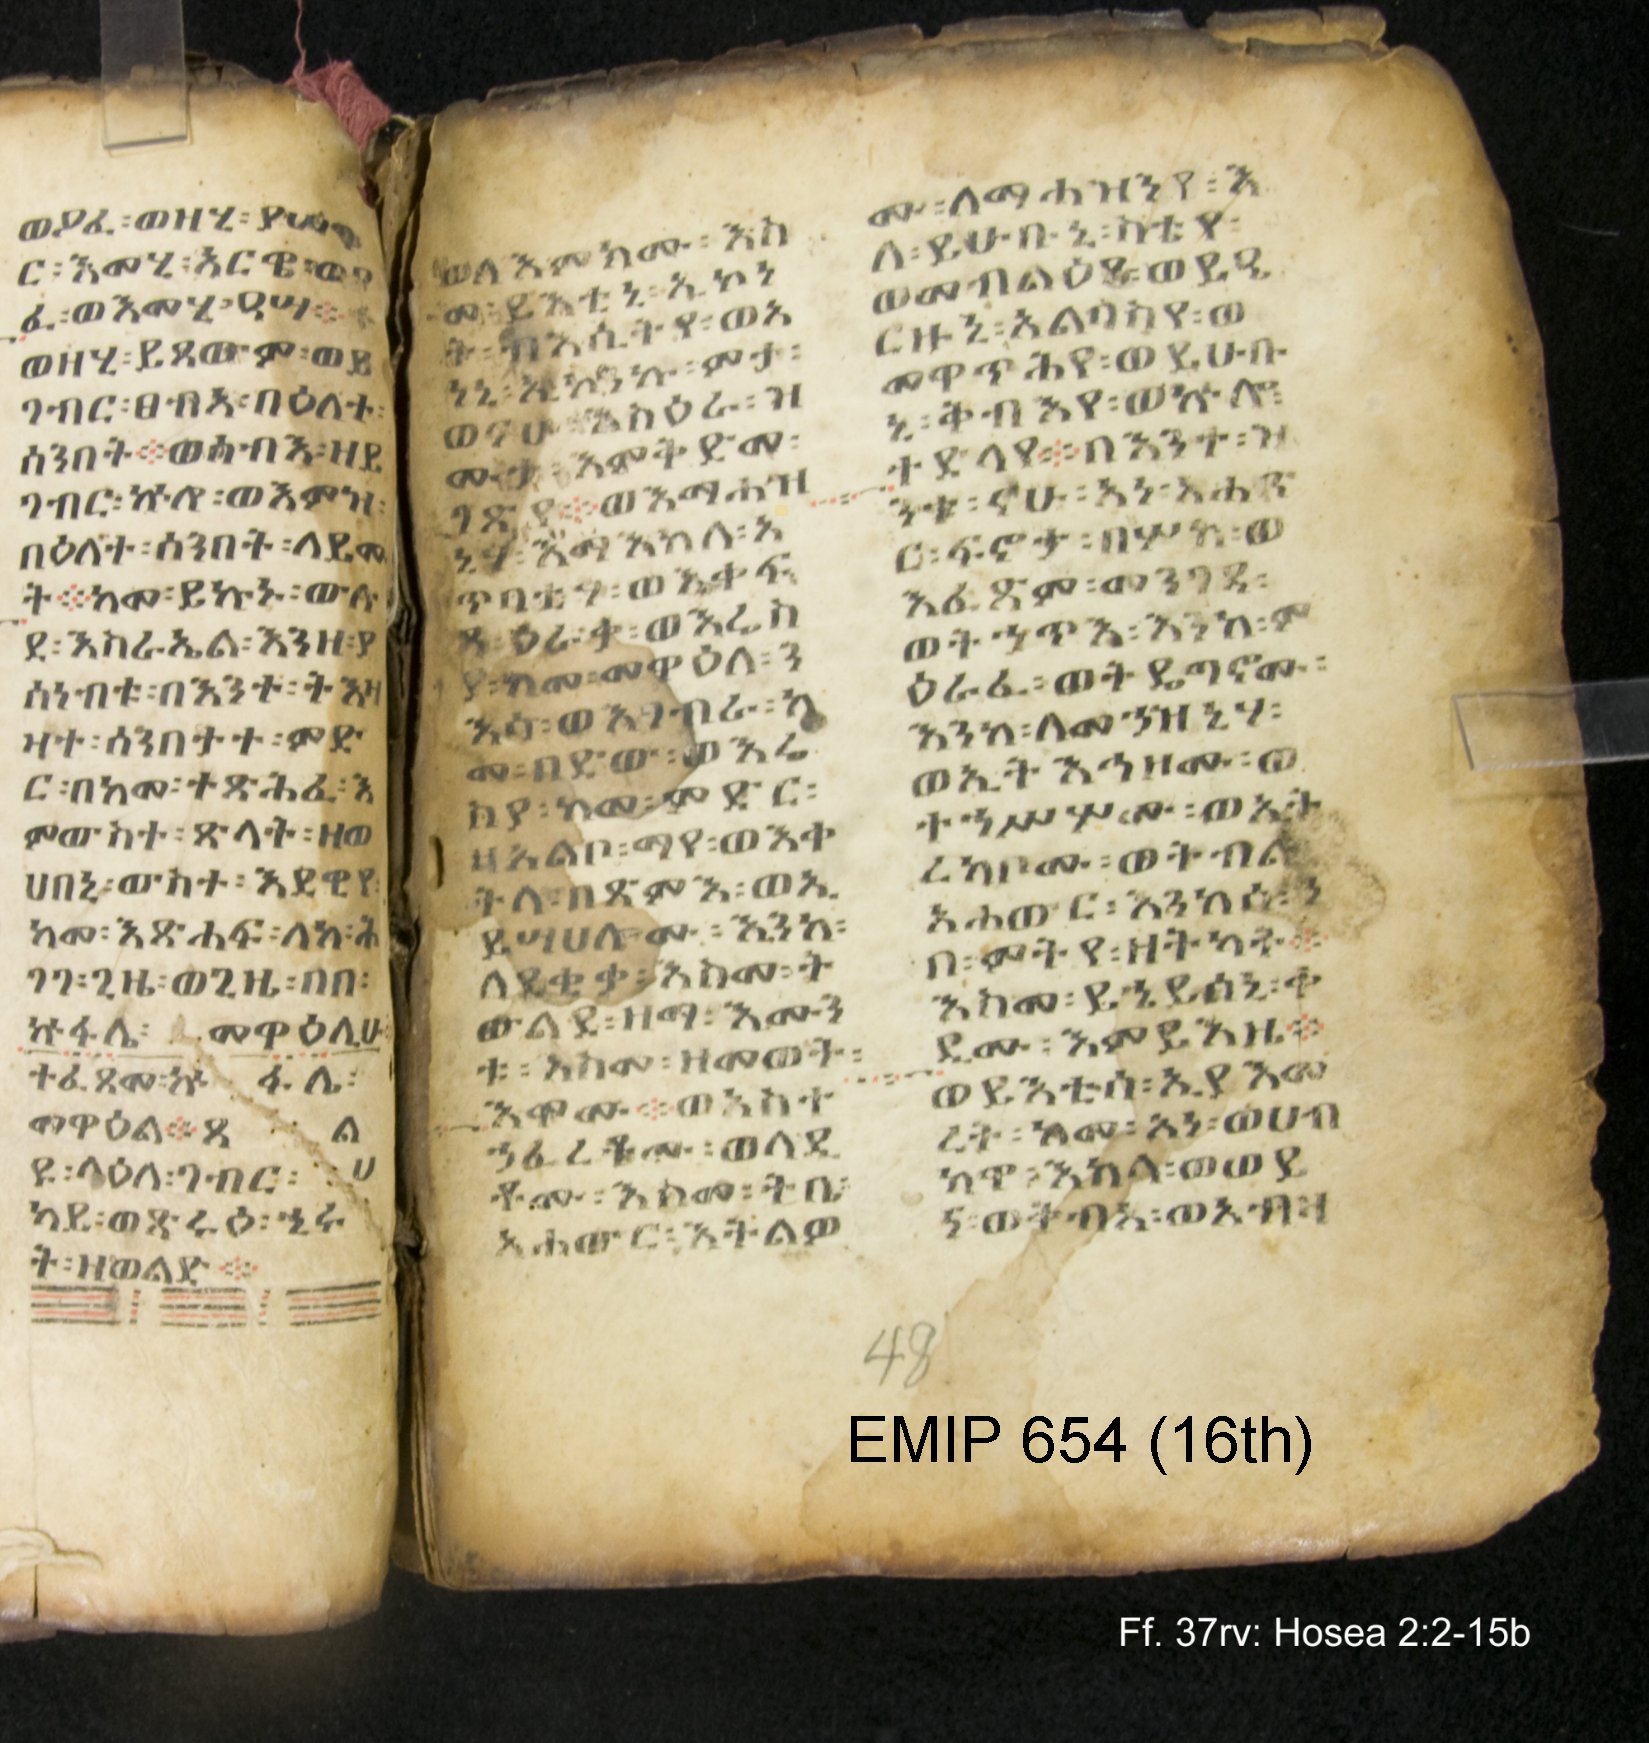 ወያፈ፡ወዘሂ፡
ር፡እመሂ፡አርዌ፡
ፈ፡ወእመሂ፡ዓሣ፨
ወዘሂ፡ይጸውም፡ወይ
ገብር፡ፀብእ፡በዕለተ፡
ሰንበት፨ወሰብእ፡ዘይ
ገብር፡ኵሎ፡ወእምዝ፡
በዕለተ፡ሰንበት፡ለይሙ
ት፨ከመ፡ይኩኑ፡ውሉ
ደ፡እስራኤል፡እንዘ፡ያ
ሰነብቱ፡በእንተ፡ትእዛ
ዛተ፡ሰንበታተ፡ምድ
ር፡በከመ፡ተጽሕፈ፡እ
ምውስተ፡ጽላት፡ዘወ
ሀበኒ፡ውስተ፡እደዊየ፡
ከመ፡እጽሐፍ፡ለከ፡ሕ
ገገ፡ጊዜ፡ወጊዜ፡በበ፡
ኩፋሌ፡መዋዕሊሁ፡
ተፈጸመ፡ኩፋሌ፡
መዋዕል፨
ዩ፡ላዕለ፡ገብር፡
ት፡ዘወልድ፨
ወለእምክሙ፡እስ
መ፡ይእቲኒ፡ኢኮነ
ት፡ብእሲትየ፡ወአ
ነኒ፡ኢኮንኩ፡ምታ፡
ሙታ፡እምትድመ፡
ገጽየ፨ወእማሐዝ
ኒሃ፡እማእከለ፡አ
ጥባቲሃ፡ወእቀፍ
ጻ፡ዕራቃ፡ወእሬስ
ያ፡ከመ፡መዋዕለ፡ን
እሳ፡ወእገብራ፡ከ
መ፡በድው፡ወእሬ
ስያ፡ከመ፡ምድር፡
ዘአልቦ፡ማየ፡ወእቀ
ትላ፡በጽምእ፡ወኢ
ይሣሀሎሙ፡እንከ፡
ለደቂቃ፡እስመ፡ት
ውልደ፡ዘማ፡እሙን
ቱ፡እስመ፡ዘመወት፡
እሞሙ፨ወአስተ
ኀፈረቶሙ፡ወላዲ
ቶሙ፡እስመ፡ትቤ፡
አሐውር፡እትልዎ
ሙ፡ለማሐዝንየ፡እ
ለ፡ይሁቡኒ፡ስቴየ፡
ወመብልዕየ፡ወይዲ
ርዙኒ፡አልባስየ፡ወ
መዋጥሕየ፡ወይሁቡ
ኒ፡ቅብእየ፡ወኵሎ፡
ተድላየ፨በእንተ፡ዝ
ንቱ፡ናሁ፡አነ፡አሐጽ
ር፡ፍኖታ፡በሦክ፡ወ
እፈጽም፡መንገዳ፡
ወትኀጥእ፡እንከ፡ም
ዕራፈ፡ወትዴግኖሙ፡
እንከ፡ለመኀዝኒሃ፡
ወኢትእኅዘሙ፡ወ
ተኀሥሦሙ፡ወኢት
ረክቦሙ፡ወትብል
አሐውር፡እንከሰ፡ኀ
በ፡ምትየ፡ዘትካት፨
እስመ፡ይኄይሰኒ፡ቀ
ዲሙ፡እምይእዜ፨
ወይእቲሰ፡ኢያእመ
ረት፡ከመ፡አነ፡ወሀብ
ክዋ፡እክለ፡ወወይ
ነ፡ወቅብአ፡ወአብዛ
48
EMIP 654 (16th)
Ff. 37rv: Hosea 2:2-15b